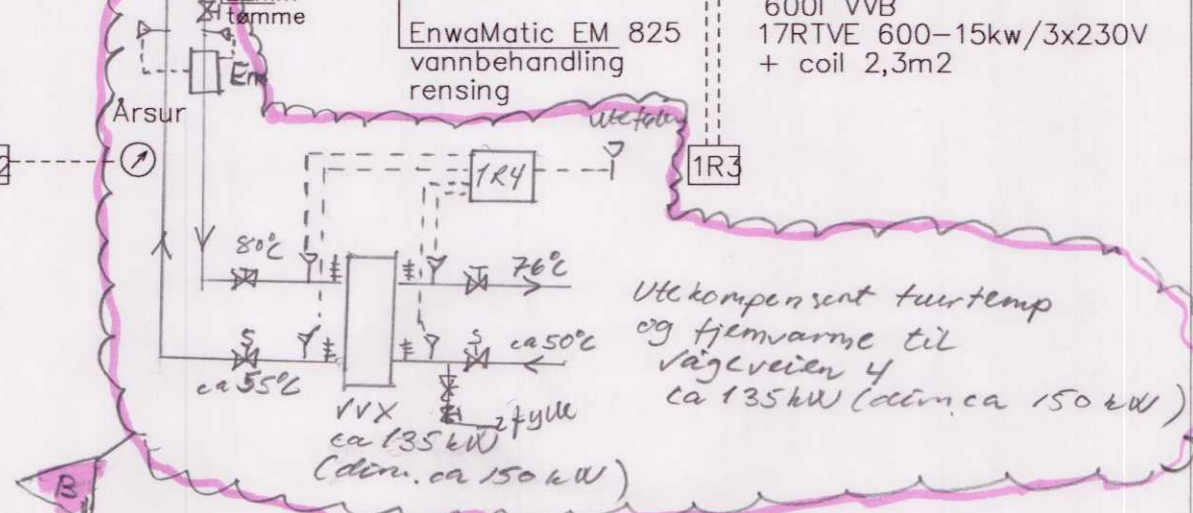 tømme
EnwaMatic EM 825
vannbehandling
rensing
600l VVB
17RTVE 600-15kw/3x230V
+ coil 2,3m2
Årsur
1R4
1R3
80°C
76°C
S
S
ca 50°C
ca 55°C
VVX
ca 135 kW
(dim. ca 150 kW)
fylle
Utekompensert turtemp
og fjernvarme til
Vågeveien 4
ca 135 kW (dim ca 150 kW)
B